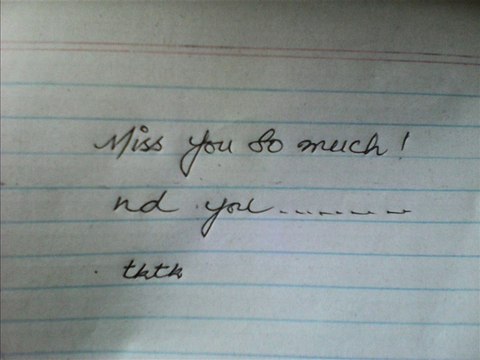 Miss you so much!
nd you.........
. tktk